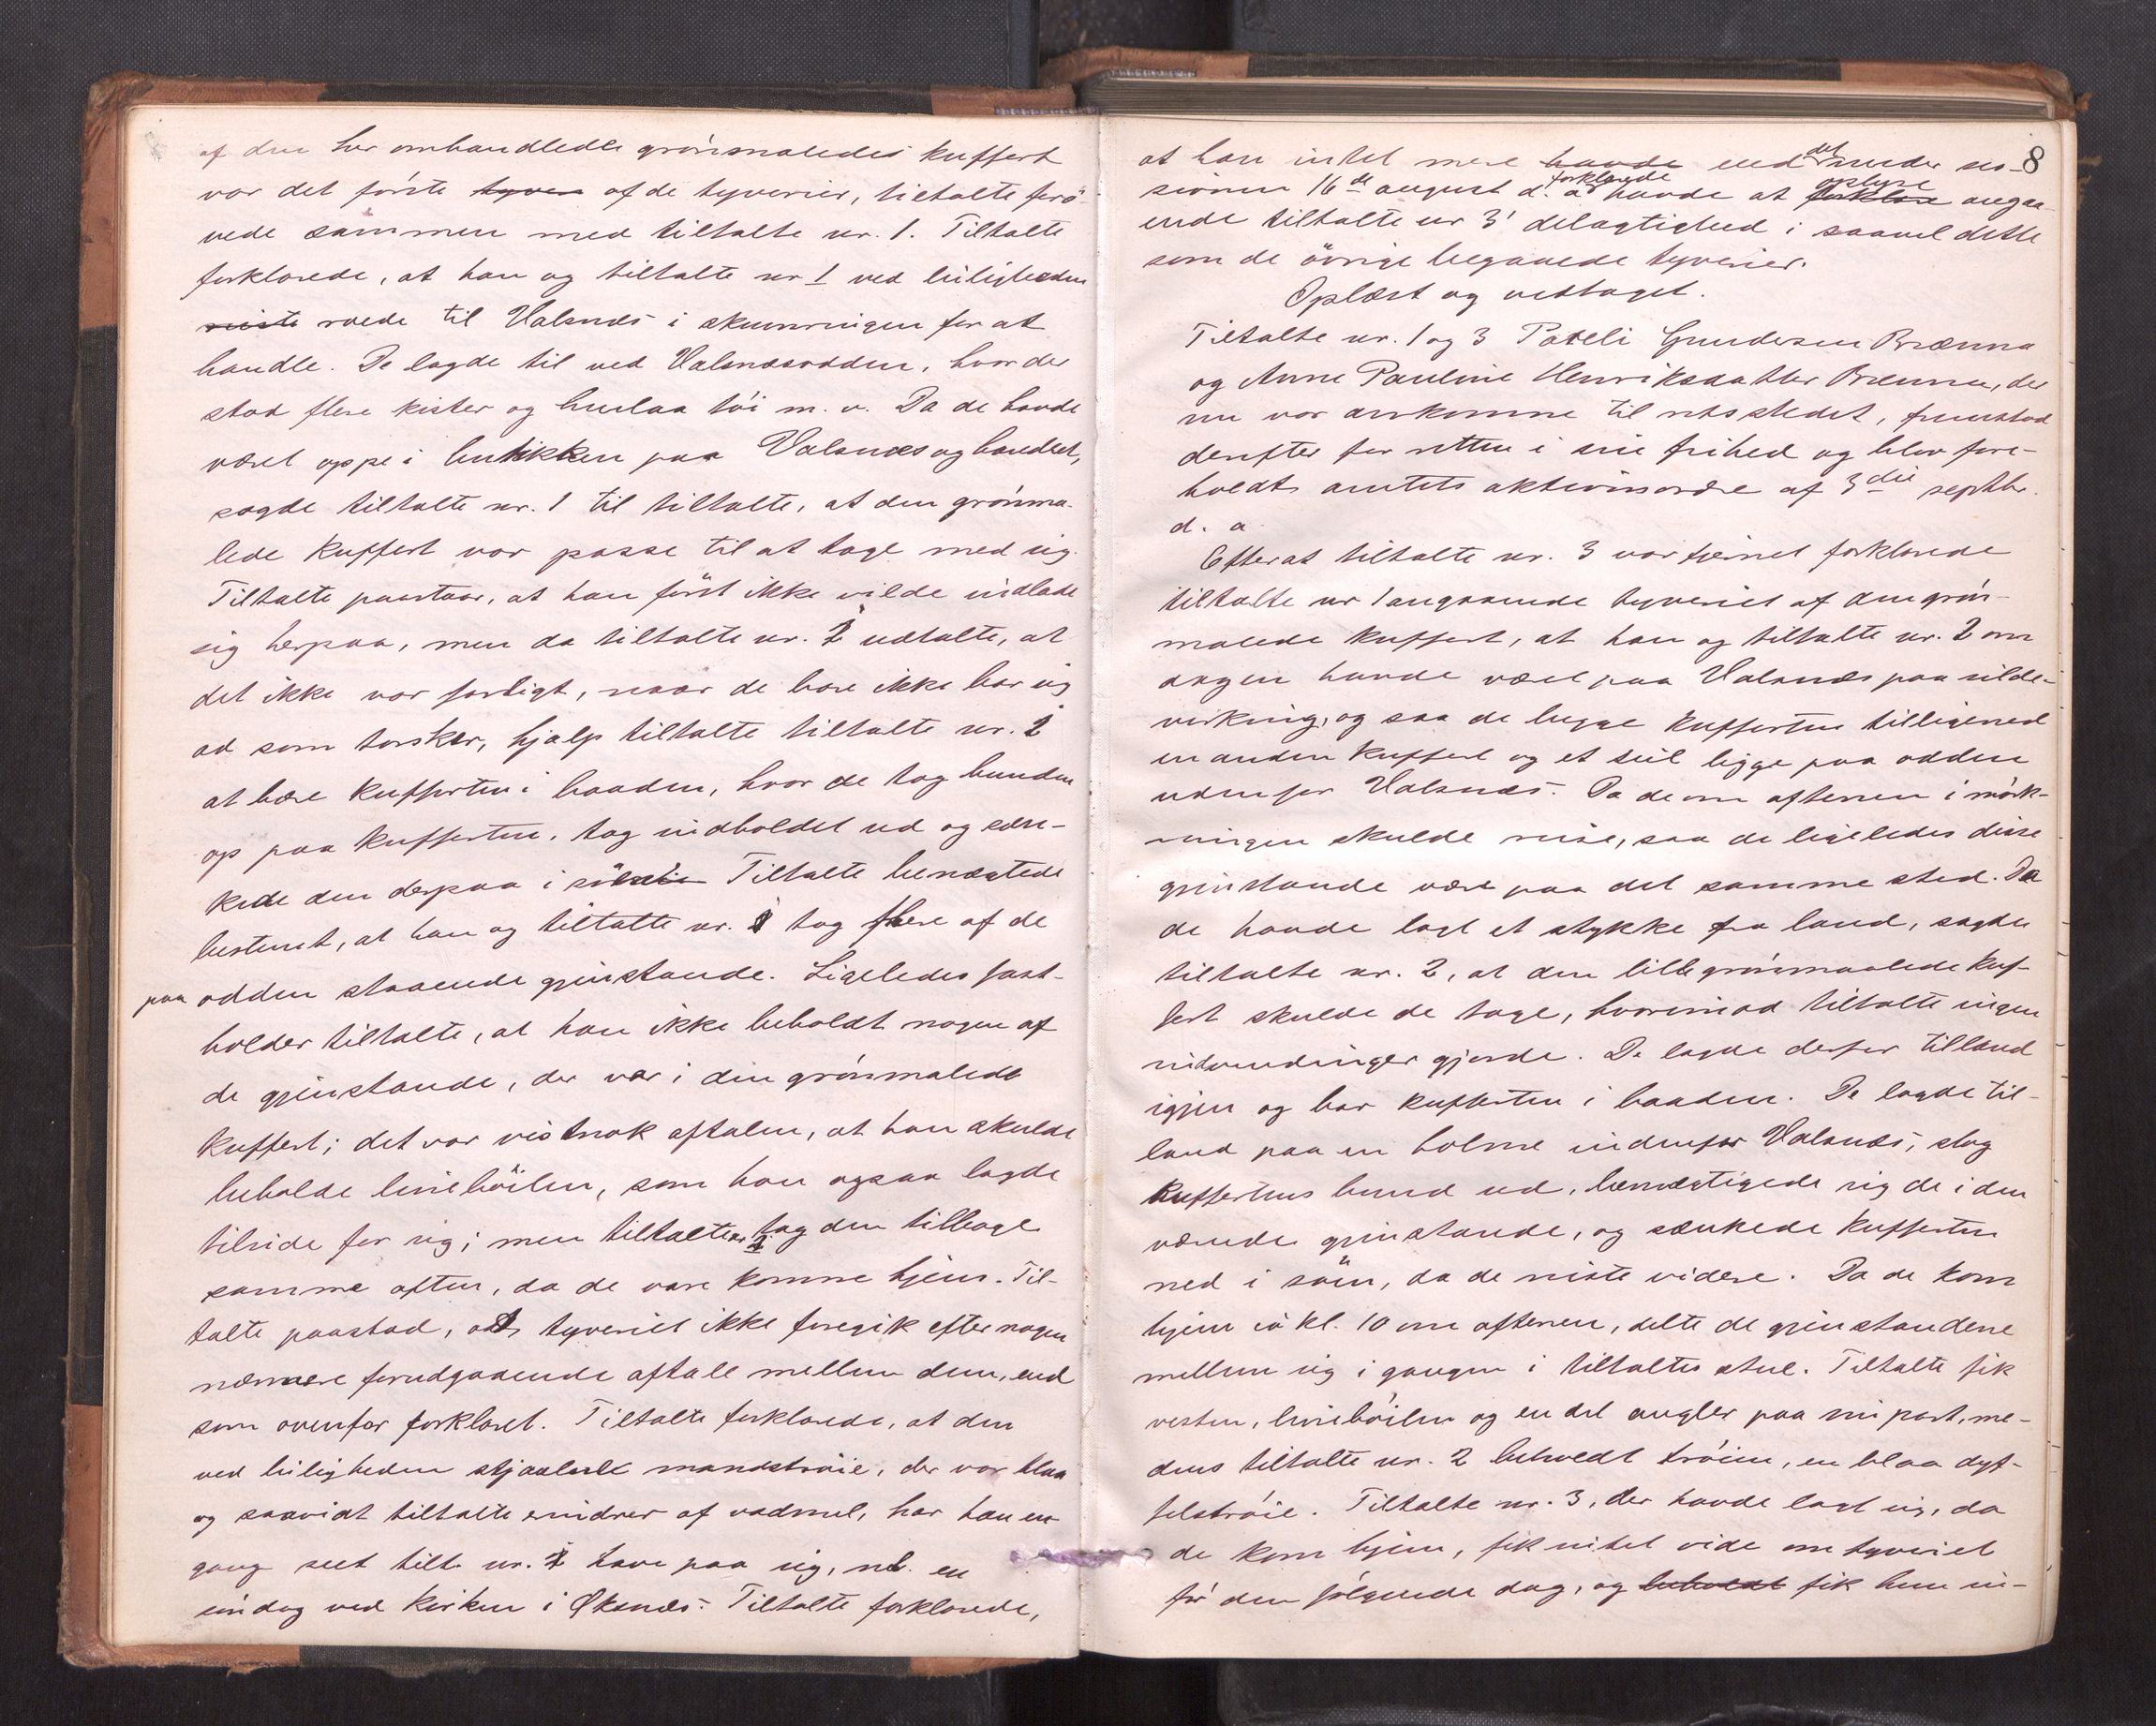 af den her omhandlede grönmalede kuffert
var det förste tyveri af de tyverier, tiltalte forö-
vede sammen med tiltalte nr. 1. Tiltalte
forklarede, at han og tiltalte nr 1 ved leiligheden
reiste roede til Valsnæs i skumringen for at
handle. De lagde til ved Valsnæsodden, hvor der
stod flere kister og hvorlaa töi m. v. Da de havde
været oppe i butikken paa Valsnæs og handlet,
sagde tiltalte nr. 1 til tiltalte, at den grönma-
lede kuffert var passe til at tage med sig.
Tiltalte paastaar, at han först ikke vilde indlade
sig herpaa, men da tiltalte nr. 1 udtalte, at
det ikke var farligt, naar de bare ikke bar sig
ad som torsker, hjalp tiltalte tiltalte nr. 1
at bære kufferten i baaden, hvor de tog bunden
op paa kufferten, tog indholdet ud og sæn-
kede den derpaa i söen. Tiltalte benægtede
bestemt, at han og tiltalte nr. 1 tog flere af de
paa odden staaende gjenstande. Ligeledes fast-
holder tiltalte, at han ikke beholdt nogen af
de gjenstande, der var i den grönmalede
kuffert; det var vistnok aftalen, at han skulde
beholde lineböilen, som han ogsaa lagde
tilside for sig; men tiltalte nr 1 tog den tilbage
samme aften, da de vare komne hjem. Til-
talte paastod, at tyveriet ikke foregik efter nogen
nærmere forudgaaende aftale mellem dem, end
som ovenfor forklaret. Tiltalte forklarede, at den
ved leiligheden stjaalede mandströie, der var blaa
og saavidt tiltalte erindrer af vadmel, har han en
gang seet tilt. nr. 1 have paa sig, nb. en
söndag ved kirken i Øksnæs. Tiltalte forklarede,
8
at han intet mere havde end det under ses-
sionen 16de august d. a. forklarede havde at forklare oplyse angaa-
ende tiltalte nr 3' delagtighed i saavel dette
som de övrige begaaede tyverier.
Oplæst og vedtaget.
Tiltalte nr. 1 og 3 Pareli Gundersen Brænna
og Anne Pauline Henriksdatter Brænna, der
nu var ankomne til retsstedet, fremstod
derefter for retten i sin frihed og blev fore-
holdt amtets aktionsordre af 3die septbr.
d. a.
Efterat tiltalte nr. 3 var fjernet forklarede
tiltalte nr 1 angaaende tyveriet af den grön-
malede kuffert, at han og tiltalte nr. 2 om
dagen havde været paa Valsnæs paa silde-
virkning, og saa de begge kufferten tilligemed
en anden kuffert og et seil ligge paa odden
udenfor Valsnæs. Da de om aftenen i mörk-
ningen skulde reise, saa de ligeledes disse
gjenstande være paa det samme sted. Da
de havde lagt et stykke fra land, sagde
tiltalte nr. 2, at den lille grönmaalede kuf-
fert skulde de tage, hvorimod tiltalte ingen
indvendinger gjorde. De lagde derfor tilland
igjen og bar kufferten i baaden. De lagde til-
land paa en holme indenfor Valsnæs, slog
kuffertens bund ud, bemægtigede sig de i den
værende gjenstande, og sænkede kufferten
ned i söen, da de reiste videre. Da de kom
hjem ca kl. 10 om aftenen, delte de gjenstandene
mellem sig i gangen i tiltaltes stue. Tiltalte fik
vesten, lineböilen og en del angler paa sin part, me-
dens tiltalte nr. 2 beholdt tröien, en blaa dyf-
felströie. Tiltalte nr. 3, der havde lagt sig, da
de kom hjem, fik intet vide om tyveriet
för den fölgende dag, og beholdt fik hun in-